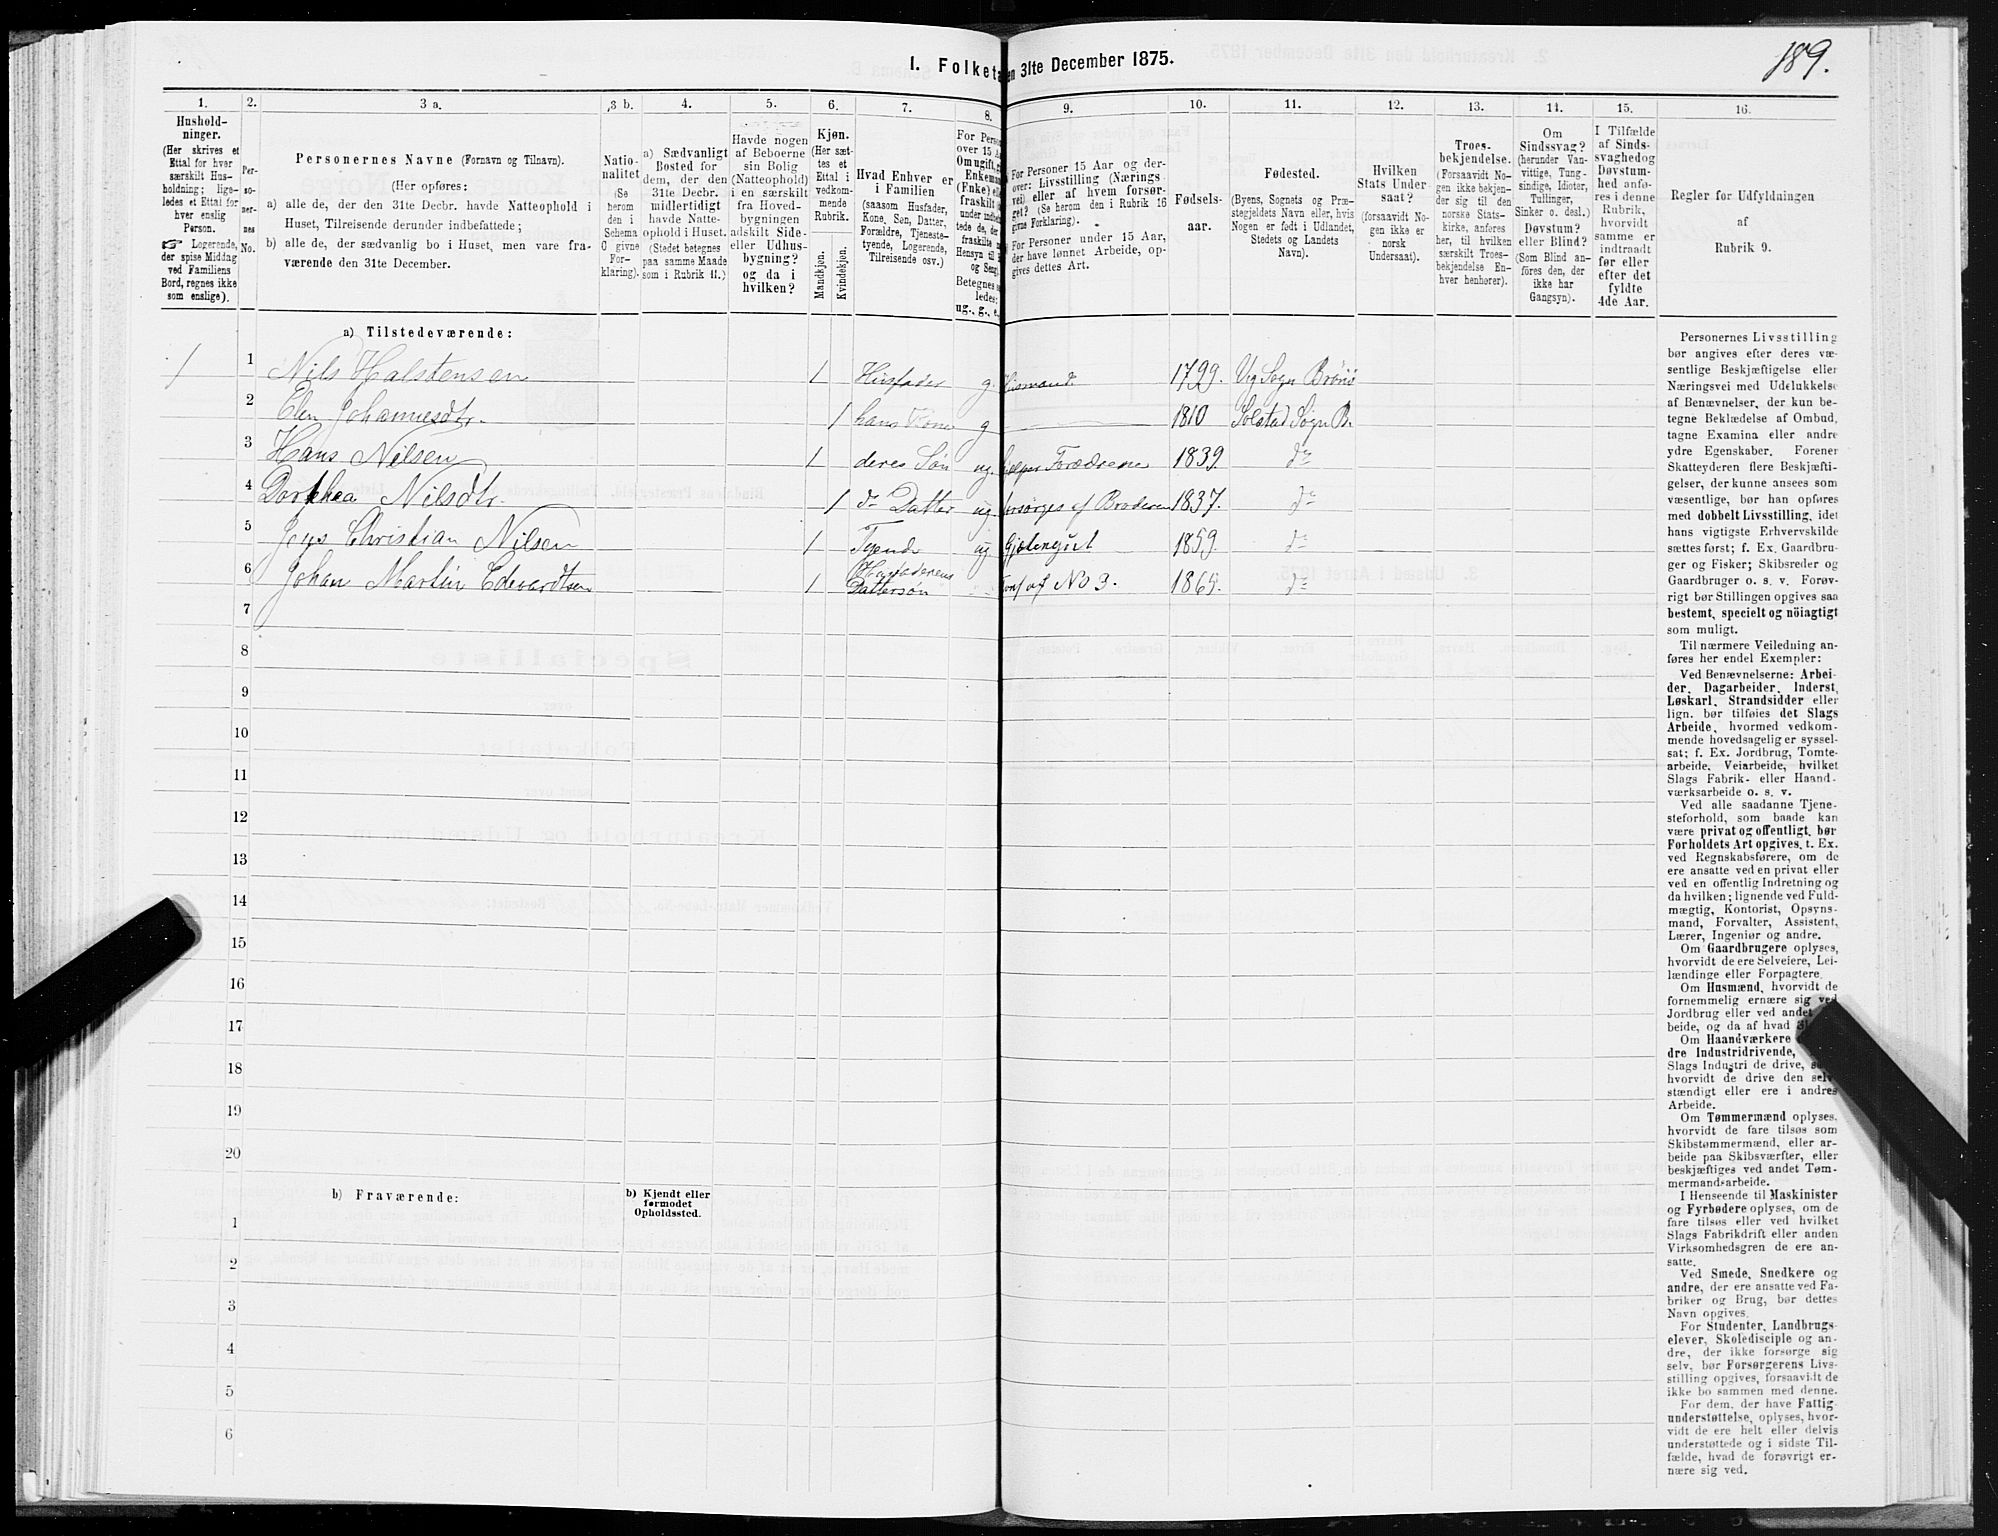 189.
I. Folketa en 31te December 1875.
1. 2. 3 a. 3 b. 4. 5. 6. 7. 8. 9. 10. 11. 12. 13. 14. 15. 16.
Hushold-
ninger.
(Her skrives et
Ettal for hver
særskilt Hus-
holdning; lige-
ledes et Ettal for
hver enslig
Person.
☞ Logerende,
der spise Middag
ved Familiens
Bord, regnes ikke
som enslige).
Per-
so-
ner-
nes
No.
Personernes Navne (Fornavn og Tilnavn).
(Her opføres:
a) alle de, der den 31te Decbr. havde Natteophold i
Huset, Tilreisende derunder indbefattede;
b) alle de, der sædvanlig bo i Huset, men vare fra-
værende den 31te December.
Natio-
nalitet
(Se
herom
den i
Schema
C givne
For-
klaring).
a) Sædvanligt
Bosted for
dem, der den
31te Decbr.
midlertidigt
havde Natte-
ophold i Huset.
(Stedet betegnes
paa samme Maade
som i Rubrik 11.)
Havde nogen
af Beboerne
sin Bolig
(Natteophold)
i en særskilt
fra Hoved-
bygningen
adskilt Side-
eller Udhus-
bygning?
og da i
hvilken?
Kjøn.
(Her sæt-
tes et
Ettal i
vedkom-
mende
Rubrik.
Mandkjøn.
Kvindekjøn.
Hvad Enhver er
i Familien
(saasom Husfader,
Kone, Søn, Datter,
Forældre, Tjeneste-
tyende, Logerende,
Tilreisende osv.)
For Perso
over 15 A
Om ugift, g
Enkema
(Fnke) ell
fraskilt
under indb
tede de, de
fraskilte
Hensyn til
og Seng.
Betegnes s
ledes:
ug., g., e.
For Personer 15 Aar og der-
over: Livsstilling (Nærings
vei) eller af hvem forsør-
get? (Se herom den i Rubrik 16
givne Forklaring).
For Personer under 15 Aar,
der have lønnet Arbeide, op-
gives dettes Art.
Fødsels-
aar.
Fødested.
(Byens, Sognets og Præ-
stegjeldets Navn eller, hvis
Nogen er født i Udlandet,
Stedets og Landets
Navn).
Hvilken
Stats Under-
saat?
(forsaavidt No-
gen ikke er
norsk
Undersaat).
Troes-
bekjendelse.
(Forsaavidt No-
gen ikke bekjen-
der sig til den
norske Stats-
kirke, anføres
her, til hvilken
særskilt Troes-
bekjendelse En-
hver henhører).
Om
Sindssvag?
(herunder Van-
vittige, Tung-
sindige, Idioter,
Tullinger,
Sinker o. desl.)
Døvstum?
eller Blind?
(Som Blind an-
føres den, der
ikke har
Gangsyn).
I Tilfælde
af Sinds-
svaghed og
Døvstum-
hed anfø-
res i denne
Rubrik,
hvorvidt
samme er
indtraadt
før eller
efter det
fyldte
4de Aar.
Regler for Udfyldningen
af
Rubrik 9.
a) Tilstedeværende:
1 1 Nils Halstensen 1 Husfader g. Husmand. 1799. Vig Sogn Brønø
2 Elen Johannesdtr. 1 hans Kone g 1810 Solstad Sogn B.
3 Hans Nilsen 1 deres Søn ug. hjelper Forældrene 1839. do
4 Dorthea Nilsdtr. 1 do Datter ug. forsørges af Broderen 1837. do
5 Christian Nilsen 1 Tyende ug Gjetergut 1859. do
6 Johan Martin Edvardtsen 1 Husfaderens Dattersøn af No 3. 1865. do
7
8
9
10
11
12
13
14
15
16
17
18
19
20
b) Fraværende:
b) Kjendt eller
formodet
Opholdssted.
1
2
3
4
5
6
Personernes Livsstilling
bør angives efter deres væ-
sentlige Beskjæftigelse eller
Næringsvei med Udelukkelse
af Benævnelser, der kun be-
tegne Beklædelse af Ombud,
tagne Examina eller andre
ydre Egenskaber. Forener
Skatteyderen flere Beskjæfti-
gelser, der kunne ansees som
væsentlige, bør han opføres
med dobbelt Livsstilling, idet
hans vigtigste Erhvervskilde
sættes først; f. Ex. Gaardbru-
ger og Fisker; Skibsreder og
Gaardbruger o. s. v. Forøv-
rigt bør Stillingen opgives saa
bestemt, specielt og nöiagtigt
som muligt.
Til nærmere Veiledning an-
føres her endel Exempler:
Ved Benævnelserne: Arbei-
der, Dagarbeider, Inderst,
Løskarl, Strandsidder eller
lign. bør tilføies det Slags
Arbeide, hvormed vedkom-
mende hovedsagelig er syssel-
sat; f. Ex. Jordbrug, Tomte-
arbeide, Veiarbeide, hvilket
Slags Fabrik- eller Haand-
værksarbeide o. s. v.
Ved alle saadanne Tjene-
steforhold, som baade kan
være privat og offentligt, bør
Forholdets Art opgives, t. Ex.
ved Regnskabsførere, om de
ere ansatte ved en privat eller
ved en offentlig Indretning og
da hvilken; lignende ved Fuld-
mægtig, Kontorist, Opsyns-
mand, Forvalter, Assistent,
Lærer, Ingeniør og andre.
Om Gaardbrugere oplyses,
hvorvidt de ere Selveiere, Lei-
lændinge eller Forpagtere.
Om Husmænd, hvorvidt de
fornemmelig ernære sig ved
Jordbrug eller ved andet
beide, og da af hvad
Om Haandværkere
dre Industridrivende,
Slags Industri de drive,
hvorvidt de drive den selv-
stændigt eller ere i andres
Arbeide.
Om Tømmermænd oplyses,
hvorvidt de fare tilsøs som
Skibstømmermænd, eller ar-
beide paa Skibsværfter, eller
beskjæftiges ved andet Tøm-
mermandsarbeide.
I Henseende til Maskinister
og Fyrbødere oplyses, om de
fare tilsøs eller ved hvilket
Slags Fabrikdrift eller anden
Virksomhedsgren de ere an-
satte.
Ved Smede, Snedkere og
andre, der ere ansatte ved Fa-
briker og Brug, bør dettes
Navn opgives.
For Studenter, Landbrugs-
elever, Skoledisciple og an-
dre, der ikke forsørge sig
selv, bør Forsørgerens Livs-
stilling opgives, forsaavidt de
ikke bo sammen med denne.
For dem, der have Fattig-
understøttelse, oplyses, hvor-
vidt de ere helt eller delvis
understøttede og i sidste Til-
fælde, hvad de forøvrigt er-
nære sig ved.